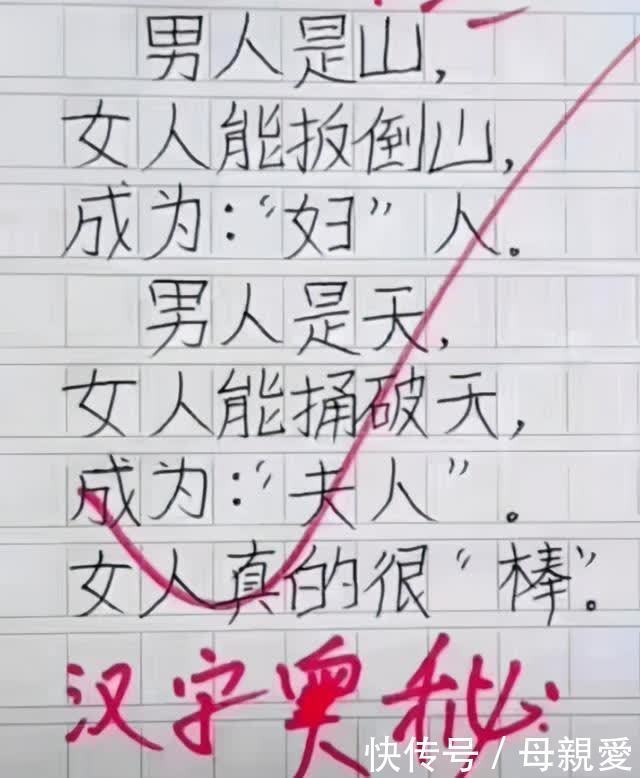 男人是山,
女人能扳倒山,
成为:“妇”人。
男人是天,
女人能捅破天,
成为:“夫人”。
女人真的很“棒”。
汉字奥秘
快传号/母親愛